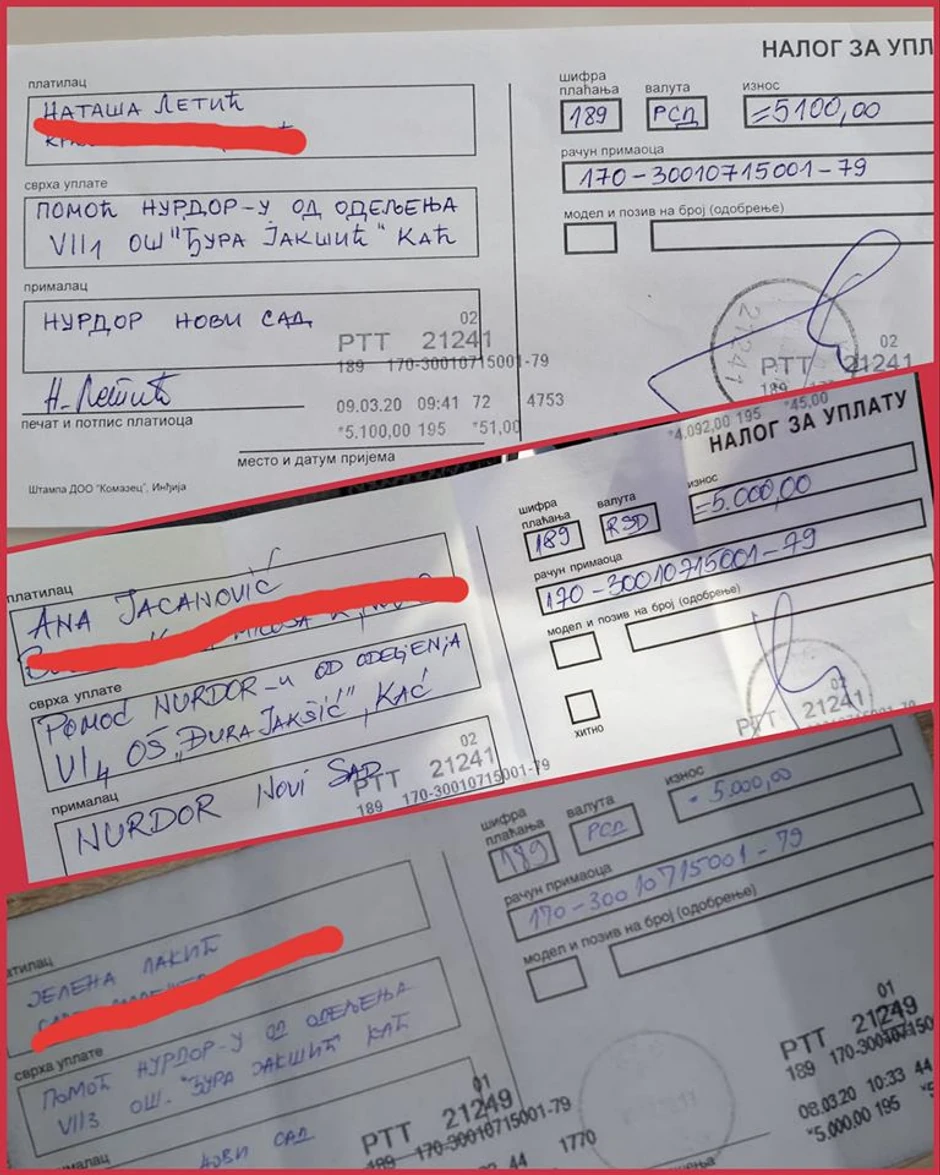 НАЛОГ ЗА УПЛ
платилац
НАТАША ЛЕТИЋ
шифра
плаћања
валута
износ
189
РСД
=5100,00
рачун примаоца
170-30010715001-79
сврха уплате
ПОМОЋ НУРДОР-У ОД ОДЕЉЕЊА
VII1 ОШ "ЂУРА ЈАКШИЋ" КАЋ
модел и позив на број (одобрење)
прималац
НУРДОР НОВИ САД
02
PTT 21241
189 170-30010715001-79
Н. Летић
печат и потпис платиоца
09.03.20 09:41 72 4753
*5.100,00 195 *51,00
место и датум пријема
Штампа ДОО "Комазец", Инђија
21241
02
PTT 21241
189
*4.092,00 195 *45,00
НАЛОГ ЗА УПЛАТУ
платилац
ANA JACANOVIĆ
шифра
плаћања
валута
износ
189
RSD
=5.000,00
рачун примаоца
170-30010715001-79
сврха уплате
POMOĆ NURDOR-U OD ODELJENJA
VI4 OŠ „ĐURA JAKŠIĆ", KAĆ
модел и позив на број (одобрење)
хитно
прималац
NURDOR NOVI SAD
02
PTT 21241
189 170-30010715001-79
02
PTT 21241
платилац
ЈЕЛЕНА ЛАКИЋ
шифра
плаћања
валута
износ
189
РСД
5.000,00
рачун примаоца
170-30010715001-79
сврха уплате
ПОМОЋ НУРДОР-У ОД ОДЕЉЕЊА
VII3 ОШ. "ЂУРА ЈАКШИЋ" КАЋ
модел и позив на број (одобрење)
НОВИ САД
01
PTT 21249
189 170-30010715001-79
44 1770
01
PTT 21249
189 170-300107150
08.03.20 10:33 44
*5.000,00 195